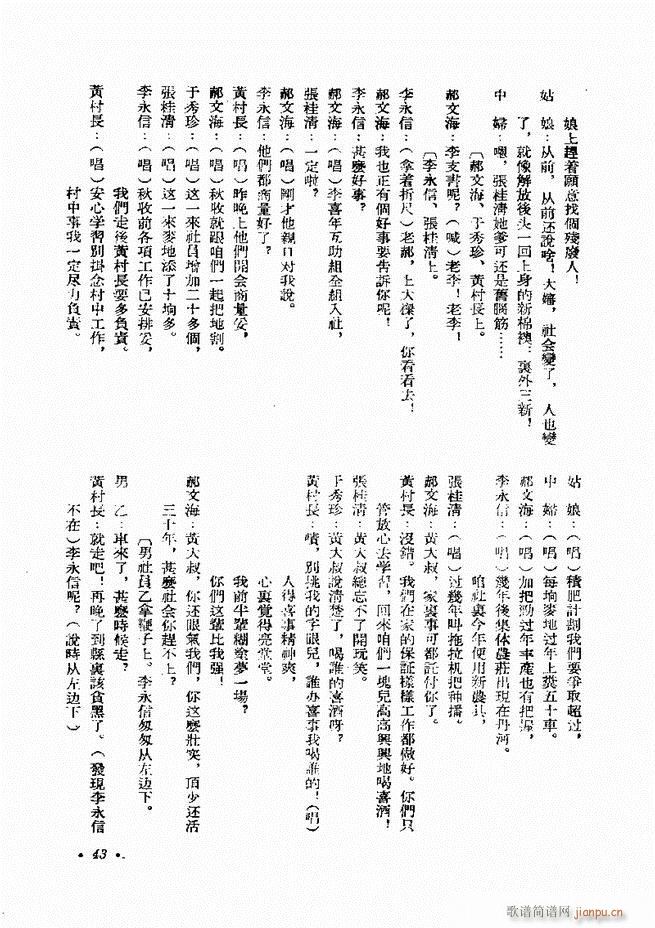 娘上趕着願意找個殘廢人！
姑　娘：从前，从前还說啥！大嬸，社会變了，人也變
了，就像解放後头一回上身的新棉襖：裏外三新！
中　婦：嗯，張桂清她爹可还是舊腦筋……
〔郝文海、于秀珍、黃村長上。
郝文海：李支書呢？（喊）老李！老李！
〔李永信、張桂清上。
李永信：（拿着折尺）老郝，上大樑了，你看看去！
郝文海：我也正有個好事要告訴你呢！
李永信：甚麼好事？
郝文海：（唱）李喜年互助組全組入社，
張桂清：一定啦？
郝文海：（唱）剛才他親口对我說。
李永信：他們都商量好了？
黃村長：（唱）昨晚上他們開会商量妥，
郝文海：（唱）秋收就跟咱們一起把地割。
于秀珍：（唱）这一來社員增加二十多個，
張桂清：（唱）这一來麥地添了十垧多。
李永信：（唱）秋收前各項工作已安排妥，
我們走後黃村長要多負責。
黃村長：（唱）安心学習別掛念村中工作，
村中事我一定尽力負責。
姑　娘：（唱）積肥計劃我們要爭取超过，
中　婦：（唱）每垧麥地过年上糞五十車。
郝文海：（唱）加把勁过年丰產也有把握，
李永信：（唱）幾年後集体農莊出現在丹河。
咱社裏今年便用新農具，
張桂清：（唱）过幾年叫拖拉机把种播。
郝文海：黃大叔，家裏事可都託付你了。
黃村長：沒錯。我們在家的保証樣樣工作都做好。你們只
管放心去学習，回來咱們一塊兒高高興興地喝喜酒！
張桂清：黃大叔總忘不了開玩笑。
于秀珍：黃大叔說清楚了，喝誰的喜酒呀？
黃村長：嘖，別挑我的字眼兒，誰办喜事我喝誰的！（唱）
人得喜事精神爽，
心裏覺得亮堂堂。
我前半輩糊塗夢一場？
你們这輩比我强！
郝文海：黃大叔，你还眼氣我們，你这麼壯实，頂少还活
三十年，甚麼社会你趕不上？
〔男社員乙拿鞭子上。李永信匆匆从左边下。
男　乙：車來了，甚麼時候走？
黃村長：就走吧！再晚了到縣裏該貪黑了。（發現李永信
不在）李永信呢？（說時从左边下）
· 43 ·
歌谱简谱网
jianpu.cn